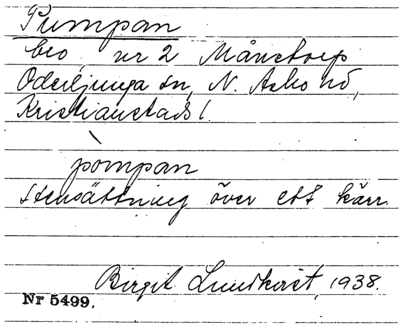 Pumpan
bro, nr 2 Månstorp
Oderljunga sn, N. Åsbo hd,
Kristianstads l.
pompan
stensättning över ett kärr.
Birgit Lundkvist, 1938.
Nr 5499.